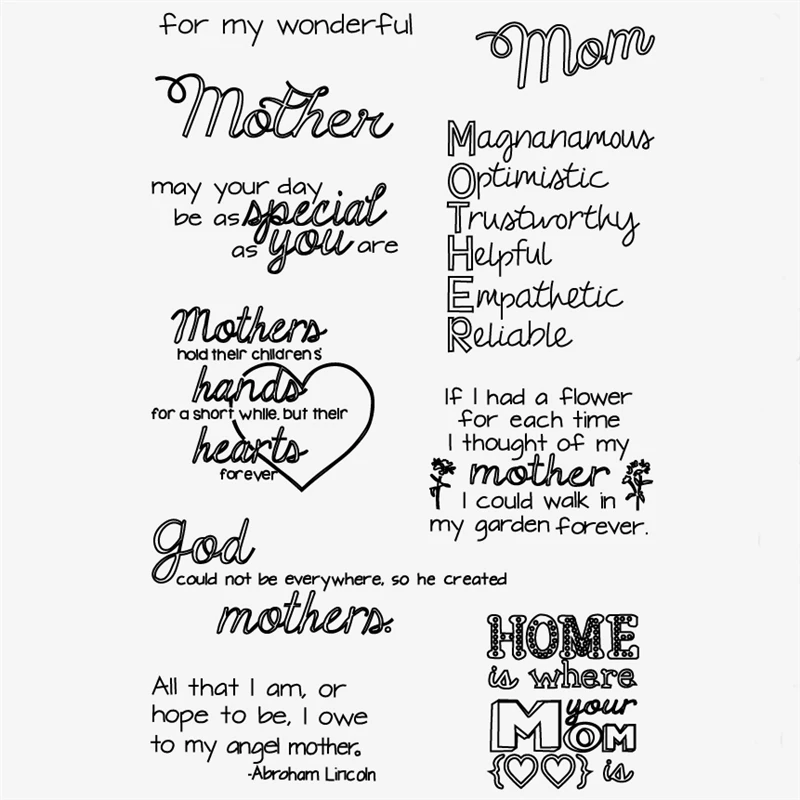 for my wonderful
Mother
may your day
be as special
as you are
Mothers
hold their childrens'
hands
for a short while, but their
hearts
forever
god
could not be everywhere, so he created
mothers.
All that I am, or
hope to be, I owe
to my angel mother.
-Abraham Lincoln
Mom
Magnanamous
Optimistic
Trustworthy
Helpful
Empathetic
Reliable
If I had a flower
for each time
I thought of my
mother
I could walk in
my garden forever.
HOME
is where
your
MOM
is